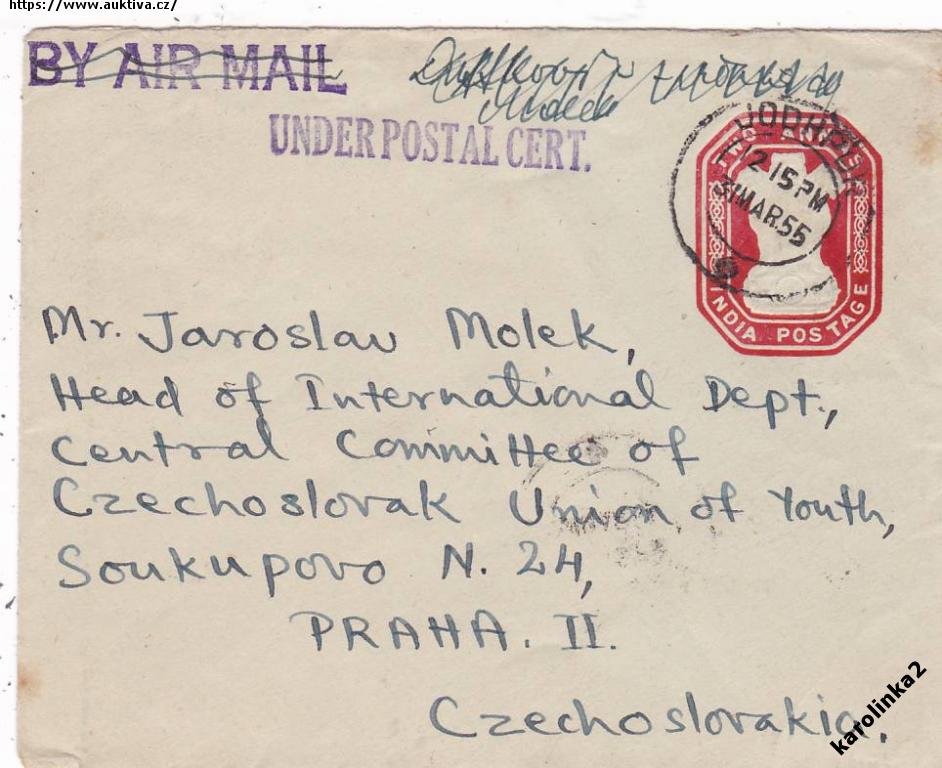 https://www.auktiva.cz/
BY AIR MAIL
UNDER POSTAL CERT.
JODHPUR
2 15 PM
31 MAR. 55
TWO ANNAS
INDIA POSTAGE
Mr. Jaroslav Molek,
Head of International Dept.,
Central Committee of
Czechoslovak Union of Youth,
Soukupovo N. 24,
PRAHA. II.
Czechoslovakia.
karolinka2